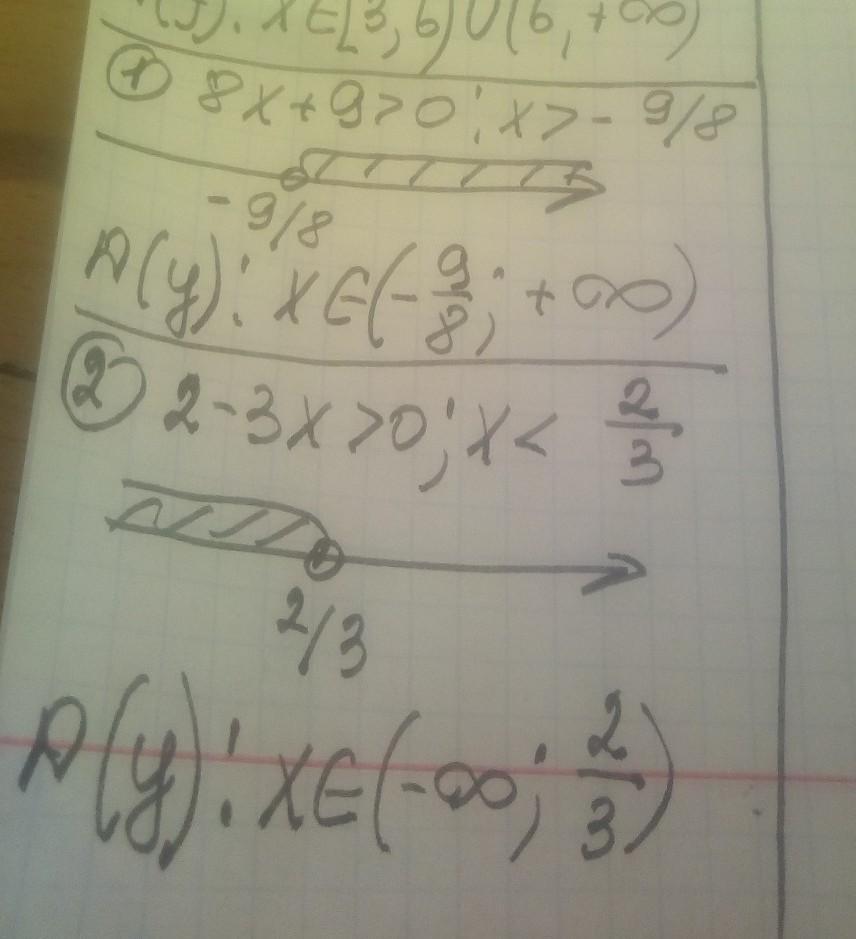 x ∈ [3, 6) ∪ (6, +∞)
① 8x + 9 > 0; x > - 9/8
- 9/8
D(y): x ∈ (-9/8; +∞)
② 2 - 3x > 0; x < 2/3
2/3
D(y): x ∈ (-∞; 2/3)